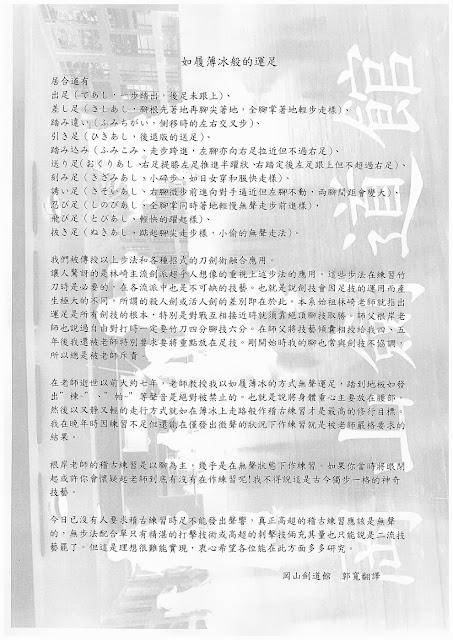 如履薄冰般的運足
居合道有
出足(であし，一步踏出，後足未跟上)、
差し足(さしあし，腳根先著地再腳尖著地，全腳掌著地輕步走樣)、
踏み違い(ふみちがい，側移時的左右交叉步)、
引き足(ひきあし，後退版的送足)、
踏み込み(ふみこみ，走步跨進，左腳亦向右足拉近但不過右足)、
送り足(おくりあし，右足提膝左足推進半躍狀，右踏定後左足跟上但不超過右足)、
刻み足(きざみあし，小碎步，如日女穿和服快走樣)、
誘い足(さそいあし、右腳微步前進向對手逼近但左腳不動，兩腳間距會變大)、
忍び足(しのびあし、全腳掌同時著地輕慢無聲走步前進樣，
飛び足(とびあし、輕快的躍起樣)、
拔き足(ぬきあし，踮起腳尖走步樣，小偷的無聲走法)。
我們被傳授以上步法和各種招式的刀劍術融合應用。
讓人驚訝的是林崎主流劍派超乎人想像的重視上述步法的應用。這些步法在練習竹
刀時是必要的，在各流派中也是不可缺的技藝。也就是說劍技會因足技的運用而產
生極大的不同，所謂的殺人劍或活人劍的差別即在於此。本系始祖林崎老師就指出
運足是所有劍技的根本，特別是對戰互相接近時就須靠絕頂腳技取勝。師父根岸老
師也說過自由對打時一定要竹刀四分腳技六分。在師父將技藝傾囊相授給我四、五
年後我還被老師特別要求要將重點放在足技。剛開始時我的腳也常與劍技不協調，
所以總是被老師斥責。
在老師逝世以前大約七年，老師教授我以如履薄冰的方式無聲運足，踏到地板如發
出"棟-"、"啪-"等聲音是絕對被禁止的。也就是說將身體重心主要放在腰部，
然後以又靜又輕的走行方式就如在薄冰上走路般作稽古練習才是最高的修行目標。
我在晚年時因練習不足但還能在僅發出微聲的狀況下作練習就是被老師嚴格要求的
結果。
根岸老師的稽古練習是以腳為主，幾乎是在無聲狀態下作練習。如果你當時將眼閉
起或許你會懷疑起老師到底有沒有在作練習呢!我不得說這是古今獨步一格的神奇
技藝。
今日已沒有人要求稽古練習時足不能發出聲響，真正高超的稽古練習應該是無聲
的，無步法配合單只有精湛的打擊技術或高超的刺擊技倆充其量也只能說是二流技
藝罷了。但這是理想很難能實現，衷心希望各位能在此方面多多研究。
岡山劍道館 郭寬翻譯
岡山劍道館